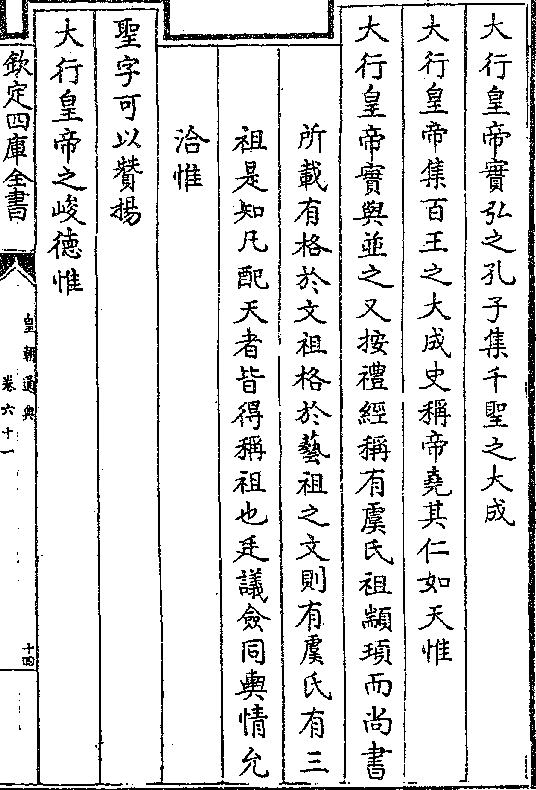 大行皇帝實弘之孔子集千聖之大成
大行皇帝集百王之大成史稱帝堯其仁如天惟
大行皇帝實與並之又按禮經稱有虞氏祖顓頊而尚書
所載有格於文祖格於藝祖之文則有虞氏有三
祖是知凡配天者皆得稱祖也廷議僉同輿情允
洽惟
聖字可以贊揚
大行皇帝之峻德惟
欽定四庫全書
皇朝通典
卷六十一
十四